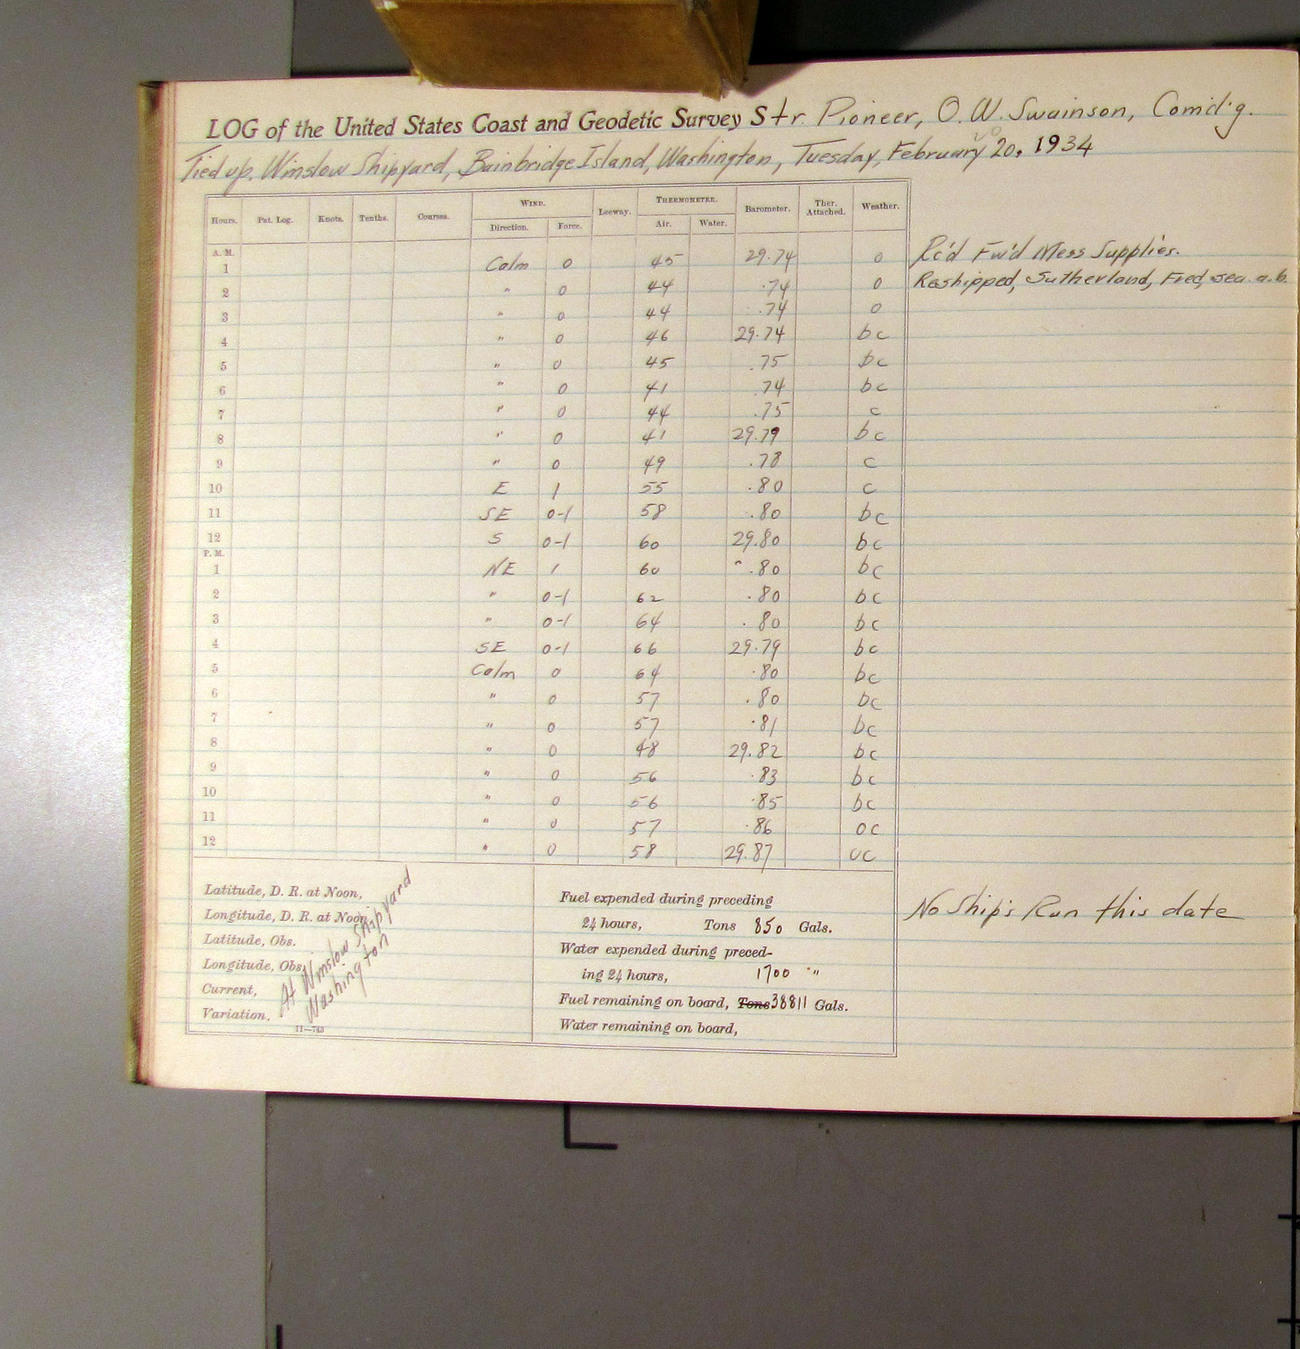 LOG of the United States Coast and Geodetic Survey Str. Pioneer, O. W. Swainson, Comd'g.
Tied up. Winslow Shipyard, Bainbridge Island, Washington, Tuesday, February 20, 1934
Hours. Pat. Log. Knots. Tenths. Courses. WIND. Leeway. THERMOMETER. Barometer. Ther. Attached. Weather.
Direction. Force. Air. Water.
A. M.
1 Calm 0 45 29.74 o Rc'd Fw'd Mess Supplies.
2 " 0 44 .74 o Reshipped, Sutherland, Fred, sea. a.b.
3 " 0 44 .74 o
4 " 0 46 29.74 bc
5 " 0 45 .75 bc
6 " 0 41 .74 bc
7 " 0 44 .75 c
8 " 0 41 29.79 bc
9 " 0 49 .78 c
10 E 1 55 .80 c
11 SE 0-1 58 .80 bc
12 S 0-1 60 29.80 bc
P. M.
1 NE 1 60 .80 bc
2 " 0-1 62 .80 bc
3 " 0-1 64 .80 bc
4 SE 0-1 66 29.79 bc
5 Calm 0 64 .80 bc
6 " 0 57 .80 bc
7 " 0 57 .81 bc
8 " 0 48 29.82 bc
9 " 0 56 .83 bc
10 " 0 56 .85 bc
11 " 0 57 .86 oc
12 " 0 58 29.87 oc
Latitude, D. R. at Noon,
Longitude, D. R. at Noon
Latitude, Obs.
Longitude, Obs.
Current,
Variation,
At Winslow Shipyard
Washington
11—763
Fuel expended during preceding
24 hours, Tons 850 Gals.
Water expended during preced-
ing 24 hours, 1700 "
Fuel remaining on board, Tons 38811 Gals.
Water remaining on board,
No Ship's Run this date